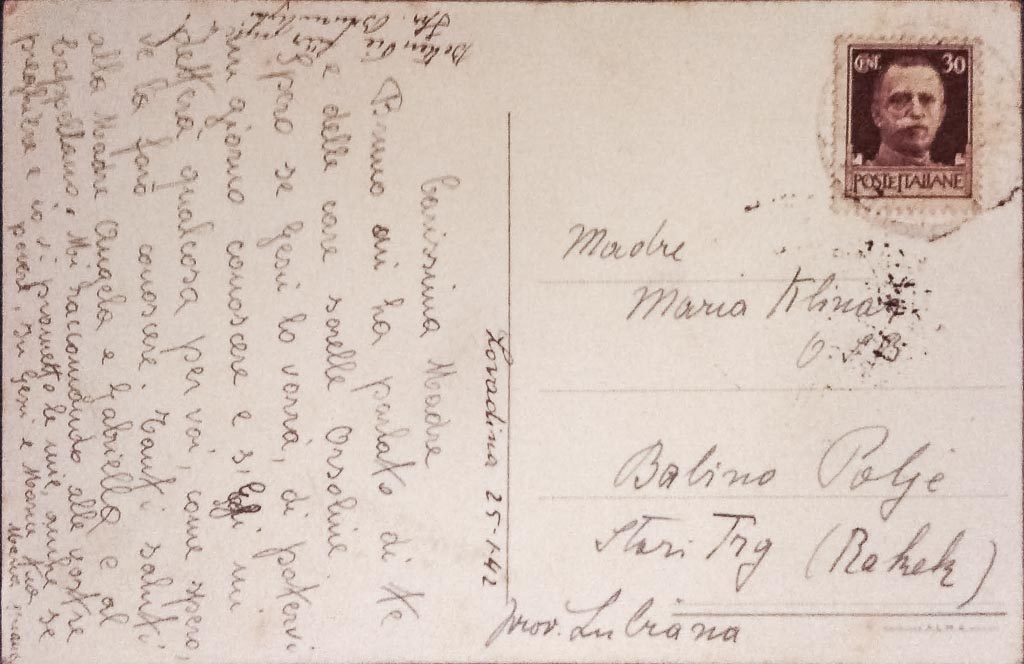 Lovadina 25-1-42
Carissima Madre
Bruno mi ha parlato di te
e delle care sorelle Orsoline
Spero se Gesù lo vorrà, di potervi
un giorno conoscere e si mi
detterà qualcosa per voi, come spero,
ve lo farò conoscere. Tanti saluti
alla Madre Angela e Gabriella e al
cappellano. Mi raccomando alle vostre
preghiere e io vi prometto le mie, anche se
povere. In Gesù e Maria tua
Maria
CENT. 30
POSTE ITALIANE
Madre
Maria Klinar
O.S.B
Babino Polje
Stari Trg (Rakek)
prov. Lubiana